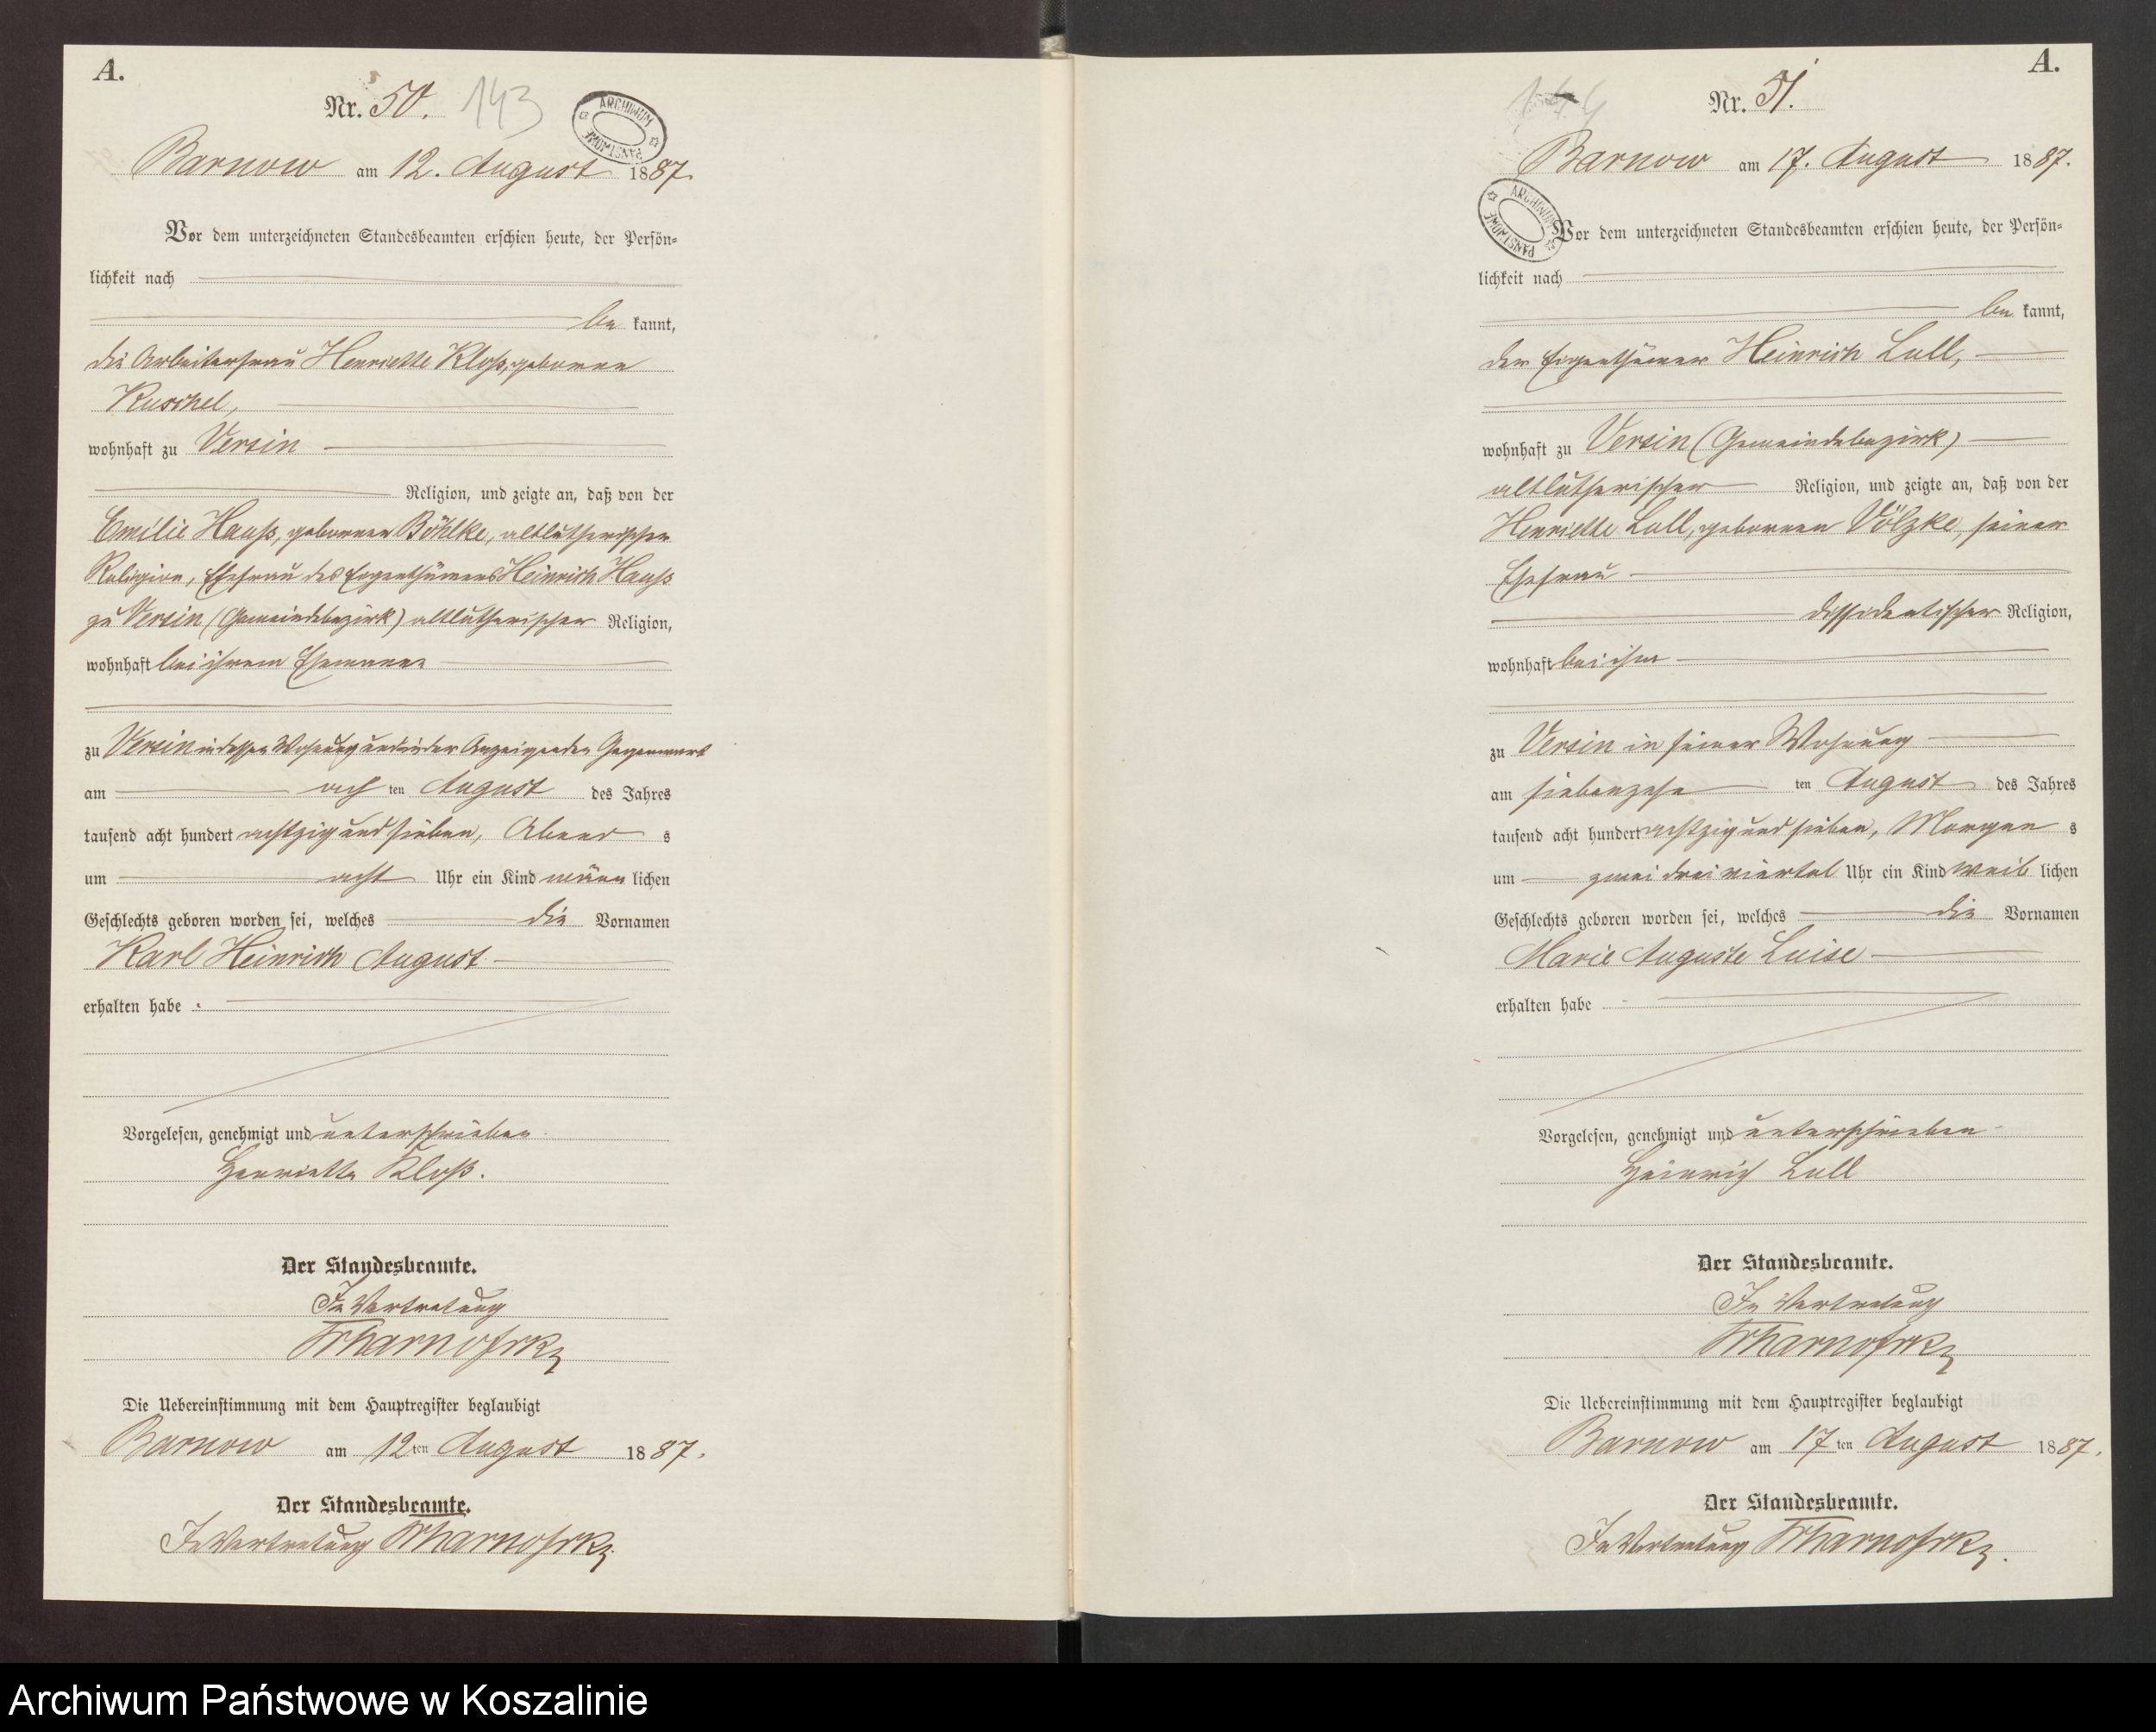 A.
Nr. 50. 143
ARCHIWUM PAŃSTWOWE
Barnow am 12. August 1887.
Vor dem unterzeichneten Standesbeamten erschien heute, der Persön-
lichkeit nach
be kannt,
die Arbeiterfrau Henriette Kloß, geborene
Kuschel,
wohnhaft zu Versin
Religion, und zeigte an, daß von der
Emilie Hauß, geborenen Böhlke, altlutherischen
Religion, Ehefrau des Eigenthümers Heinrich Hauß
zu Versin (Gemeindebezirk) altlutherischer Religion,
wohnhaft bei ihrem Ehemanne
zu Versin in dessen Wohnung und in der Anzeigenden Gegenwart
am ach ten August des Jahres
tausend acht hundert achtzig und sieben, Abend s
um acht Uhr ein Kind männ lichen
Geschlechts geboren worden sei, welches die Vornamen
Karl Heinrich August
erhalten habe .
Vorgelesen, genehmigt und unterschrieben.
Henriette Kloß.
Der Standesbeamte.
In Vertretung
Die Uebereinstimmung mit dem Hauptregister beglaubigt
Barnow am 12 ten August 1887.
Der Standesbeamte.
In Vertretung
A.
144 Nr. 51.
Barnow am 17. August 1887.
ARCHIWUM PAŃSTWOWE
Vor dem unterzeichneten Standesbeamten erschien heute, der Persön-
lichkeit nach
be kannt,
der Eigenthümer Heinrich Lull,
wohnhaft zu Versin (Gemeindebezirk)
altlutherischer Religion, und zeigte an, daß von der
Henriette Lull, geborenen Völzke, seiner
Ehefrau
dissidentischer Religion,
wohnhaft bei ihm
zu Versin in seiner Wohnung
am siebenzehn ten August des Jahres
tausend acht hundert achtzig und sieben, Morgen s
um zwei drei viertel Uhr ein Kind weib lichen
Geschlechts geboren worden sei, welches die Vornamen
Marie Auguste Luise
erhalten habe
Vorgelesen, genehmigt und unterschrieben
Heinrich Lull
Der Standesbeamte.
In Vertretung
Die Uebereinstimmung mit dem Hauptregister beglaubigt
Barnow am 17 ten August 1887.
Der Standesbeamte.
In Vertretung
Archiwum Państwowe w Koszalinie